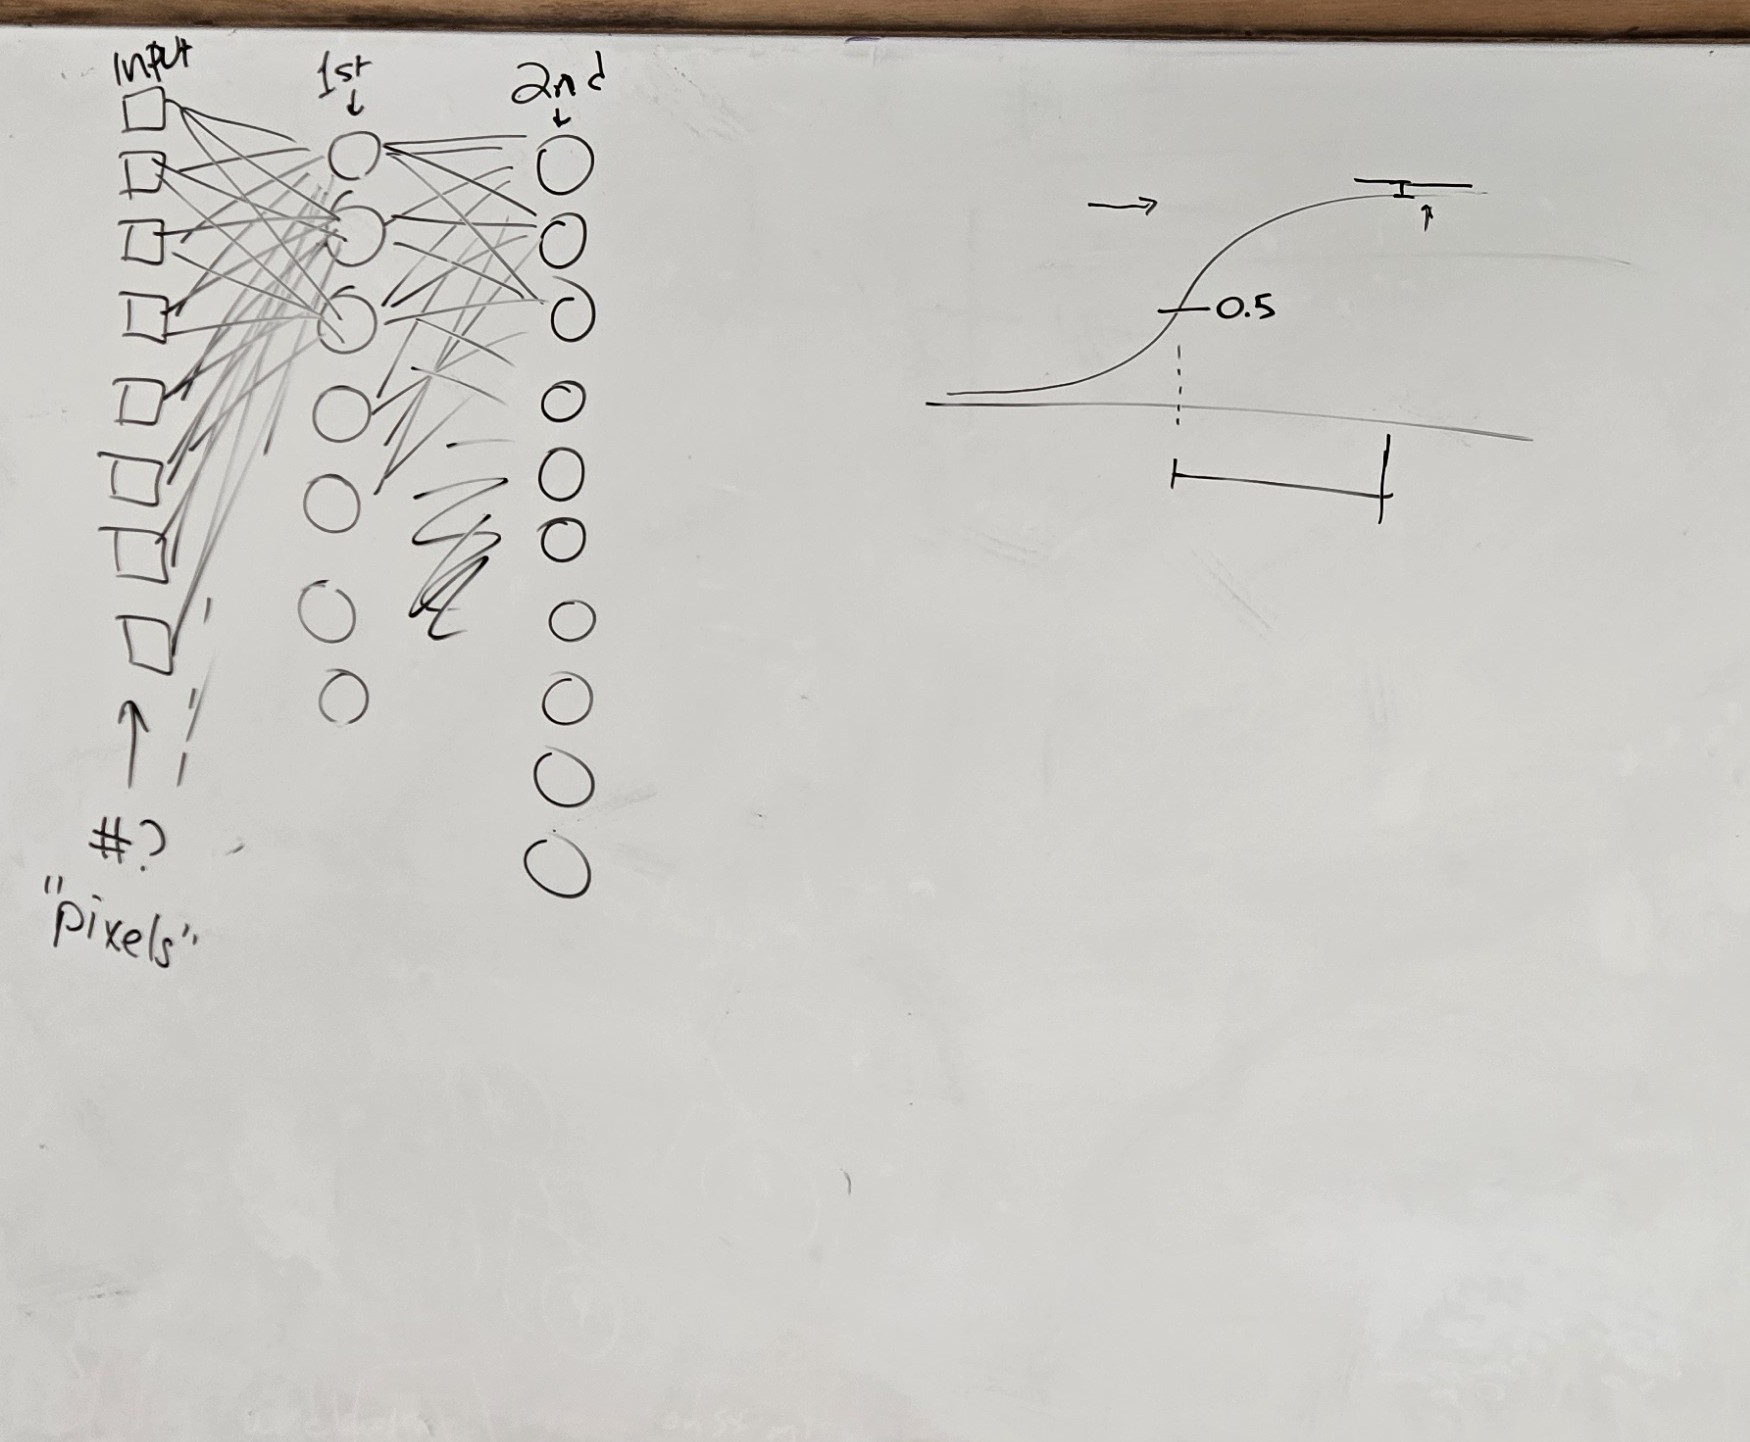 Input
1st
2nd
0.5
#?
"pixels"